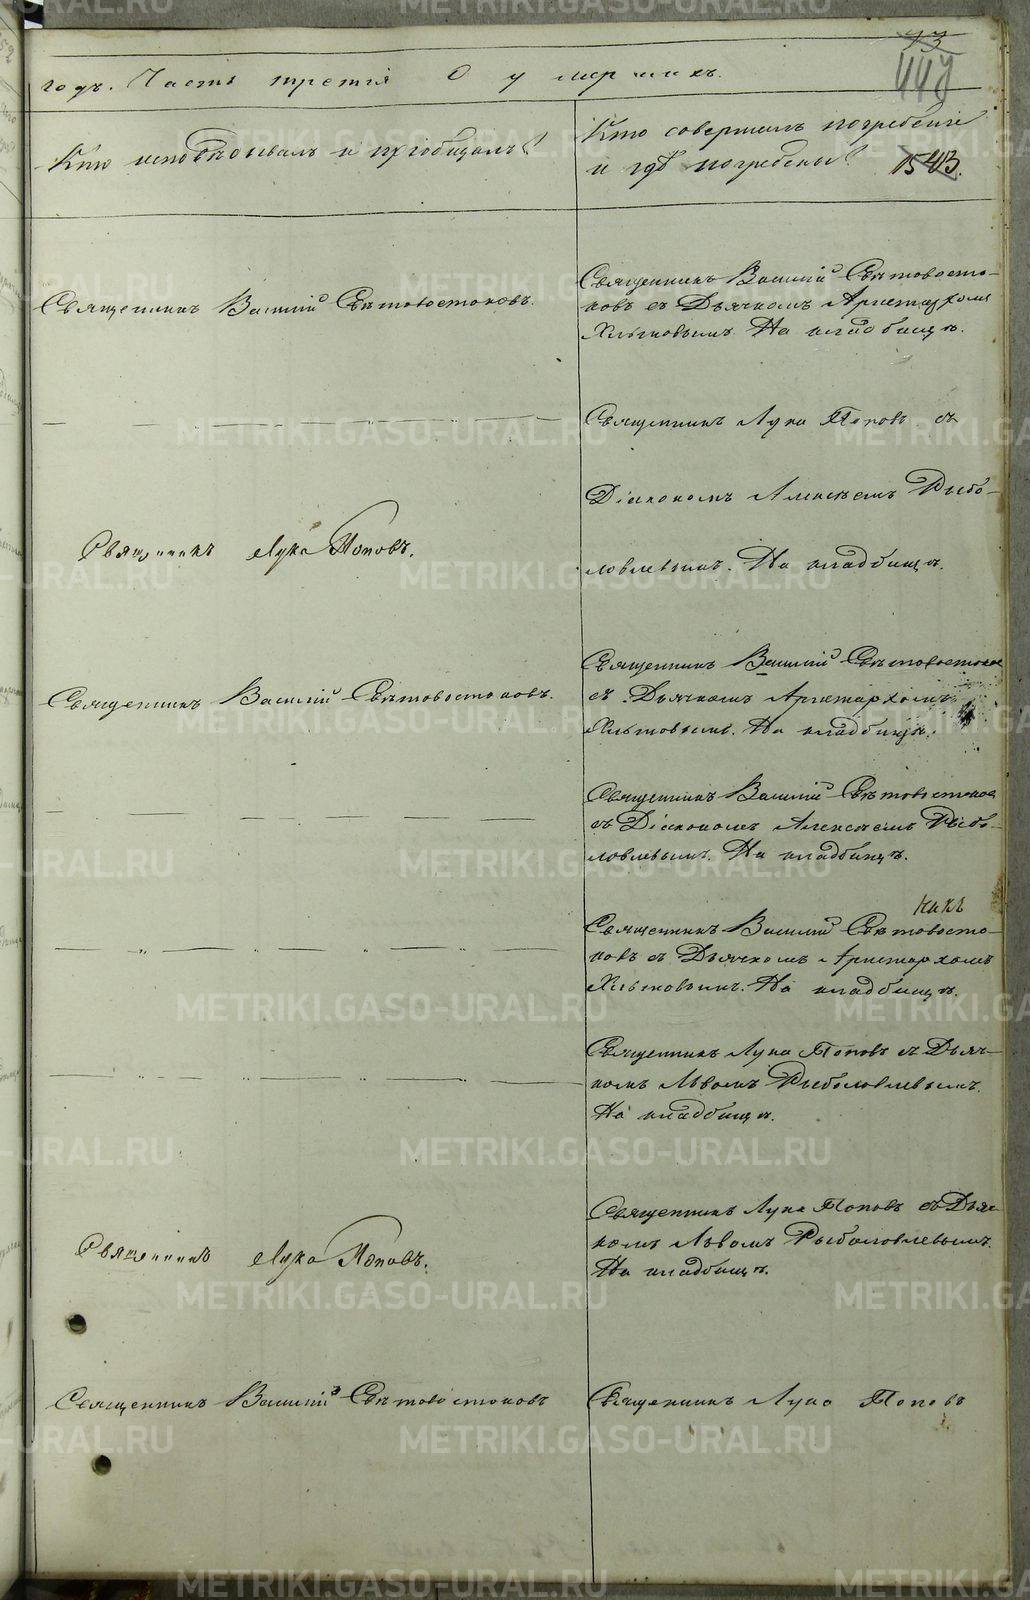 13
годъ. Часть третія О умершихъ.
Кто исповѣдывалъ и пріобщалъ?
Кто совершалъ погребеніе
и гдѣ погребены?
1543.
Священникъ Василій Свѣтовостоковъ.
Священникъ Василій Свѣтовосто-
ковъ съ Дьячкомъ Аристархомъ
На кладбищѣ.
Священникъ Лука Поповъ съ
Діакономъ Алексѣемъ Рыбо-
ловлевымъ. На кладбищѣ.
Священникъ Лука Поповъ.
Священникъ Василій Свѣтовостоковъ.
Священникъ Василій Свѣтовостоков
съ Дьячкомъ Аристархомъ
На кладбищѣ.
Священникъ Василій Свѣтовостоков
съ Діакономъ Алексѣемъ Рыбо-
ловлевымъ. На кладбищѣ.
Священникъ Василій Свѣтовосто-
ковъ съ Дьячкомъ Аристархомъ
На кладбищѣ.
Священникъ Лука Поповъ съ Дьяч-
комъ Львомъ Рыболовлевымъ.
На кладбищѣ.
Священникъ Лука Поповъ.
Священникъ Лука Поповъ съ Дьяч-
комъ Львомъ Рыболовлевымъ.
На кладбищѣ.
Священникъ Василій Свѣтовостоковъ
Священникъ Лука Поповъ
METRIKI.GASO-URAL.RU